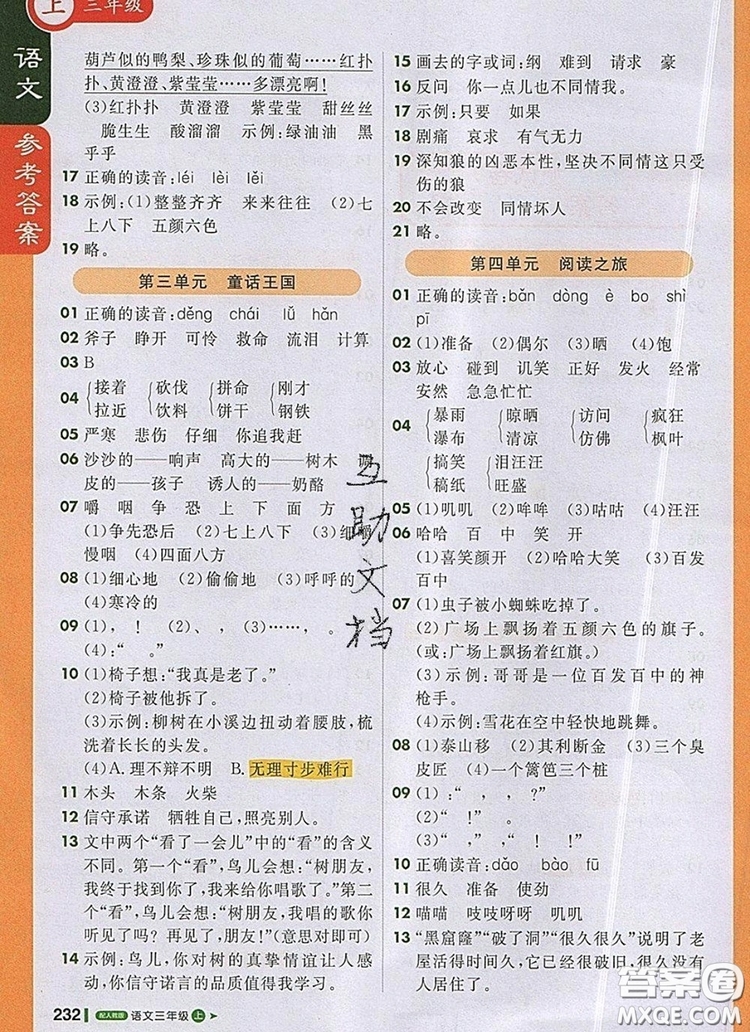 上 三年级
语文
参考答案
葫芦似的鸭梨、珍珠似的葡萄……红扑
扑、黄澄澄、紫莹莹……多漂亮啊!
(3)红扑扑 黄澄澄 紫莹莹 甜丝丝
脆生生 酸溜溜 示例:绿油油 黑
乎乎
17 正确的读音:léi lèi lěi
18 示例:(1)整整齐齐 来来往往 (2)七
上八下 五颜六色
19 略。
第三单元 童话王国
01 正确的读音:děng chái lǔ hǎn
02 斧子 睁开 可怜 救命 流泪 计算
03 B
04 接着 砍伐 拼命 刚才
拉近 饮料 饼干 钢铁
05 严寒 悲伤 仔细 你追我赶
06 沙沙的——响声 高大的——树木
皮的——孩子 诱人的——奶酪
07 嚼 咽 争 恐 上 下 面 方
(1)争先恐后 (2)七上八下 (3)细嚼
慢咽 (4)四面八方
08 (1)细心地 (2)偷偷地 (3)呼呼的
(4)寒冷的
09 (1), ! (2)、, (3)……,。
(4):“ 。”
10 (1)椅子想:“我真是老了。”
(2)椅子被他拆了。
(3)示例:柳树在小溪边扭动着腰肢,梳
洗着长长的头发。
(4)A.理不辩不明 B.无理寸步难行
11 木头 木条 火柴
12 信守承诺 牺牲自己,照亮别人。
13 文中两个“看了一会儿”中的“看”的含义
不同。第一个“看”,鸟儿会想:“树朋友,
我终于找到你了,我来给你唱歌了。”第二
个“看”:鸟儿会想:“树朋友,我唱的歌你
听见了吗?再见了,朋友!”(意思对即可)
14 示例:鸟儿,你对树的真挚情谊让人感
动,你信守诺言的品质值得我学习。
232 配人教版 语文三年级 上
15 画去的字或词:纲 难到 请求 豪
16 反问 你一点儿也不同情我。
17 示例:只要 如果
18 剧痛 哀求 有气无力
19 深知狼的凶恶本性,坚决不同情这只受
伤的狼
20 不会改变 同情坏人
21 略。
第四单元 阅读之旅
01 正确的读音:bǎn dòng è bo shì
pī
02 (1)准备 (2)偶尔 (3)晒 (4)饱
03 放心 碰到 讥笑 正好 发火 经常
安然 急急忙忙
04 暴雨 晾晒 访问 疯狂
瀑布 清凉 仿佛 枫叶
搞笑 泪汪汪
稿纸 旺盛
05 (1)叽叽 (2)哞哞 (3)咕咕 (4)汪汪
06 哈哈 百 中 笑 开
(1)喜笑颜开 (2)哈哈大笑 (3)百发
百中
07 (1)虫子被小蜘蛛吃掉了。
(2)广场上飘扬着五颜六色的旗子。
(或:广场上飘扬着红旗。)
(3)示例:哥哥是一位百发百中的神
枪手。
(4)示例:雪花在空中轻快地跳舞。
08 (1)泰山移 (2)其利断金 (3)三个臭
皮匠 (4)一个篱笆三个桩
09 (1):“ , 。”
(2)“ !” 。
(3)“ ?” , 。
10 正确读音:dǎo bào fū
11 很久 准备 使劲
12 喵喵 吱吱呀呀 叽叽
13 “黑窟窿”“破了洞”“很久很久”说明了老
屋活得十分久了,并且已经破旧,很久没
有人居住了。
互助文档
答案圈
MXQE.COM